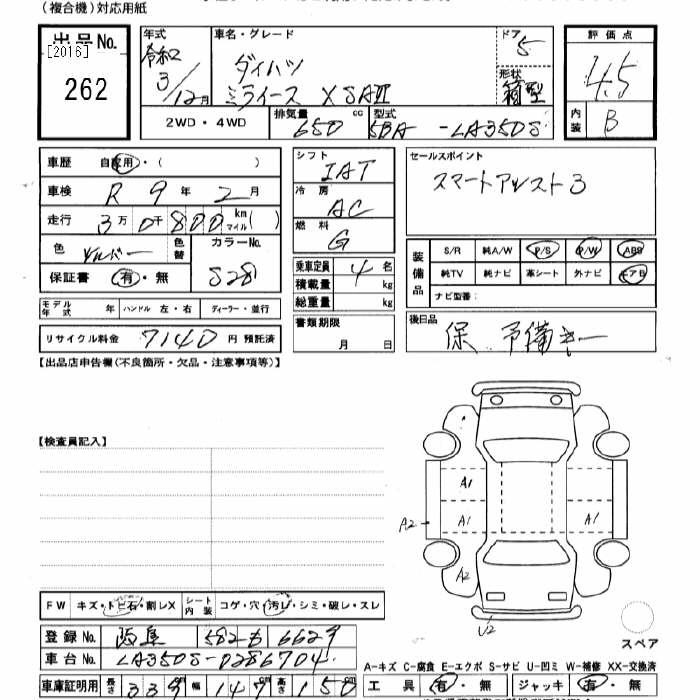 (複合機)対応用紙
出品No.
[2016]
262
年式
令和2
3/12月
車名・グレード
ダイハツ
ミライース X SAⅢ
ドア
5
形状
箱型
評価点
4.5
内装 B
2WD・4WD
排気量 650 cc
型式 5BA-LA350S
車歴 自家用・( )
車検 R 9 年 2 月
走行 3万0千800 km マイル( )
色 シルバー 色替
カラーNo. S28
保証書 有・無
シフト IAT
冷房 AC
燃料 G
乗車定員 4 名
積載量 kg
総重量 kg
セールスポイント
スマートアシスト3
装備品
S/R 純A/W P/S P/W ABS
純TV 純ナビ 革シート 外ナビ エアB
ナビ型番:
モデル年式 年 ハンドル 左・右 ディーラー・並行
リサイクル料金 7140 円 預託済
書類期限
月 日
後日品
保 予備キー
【出品店申告欄(不良箇所・欠品・注意事項等)】
【検査員記入】
A1
A2 A1 A1
A2
U2
スペア
FW キズ・トビ石・割レX シート内装 コゲ・穴・汚レ・シミ・破レ・スレ
登録No. 582 6629
車台No. LA350S-0286704
A-キズ C-腐食 E-エクボ S-サビ U-凹ミ W-補修 XX-交換済
車庫証明用 長さ 339 幅 147 高さ 150
工具 有・無 ジャッキ 有・無